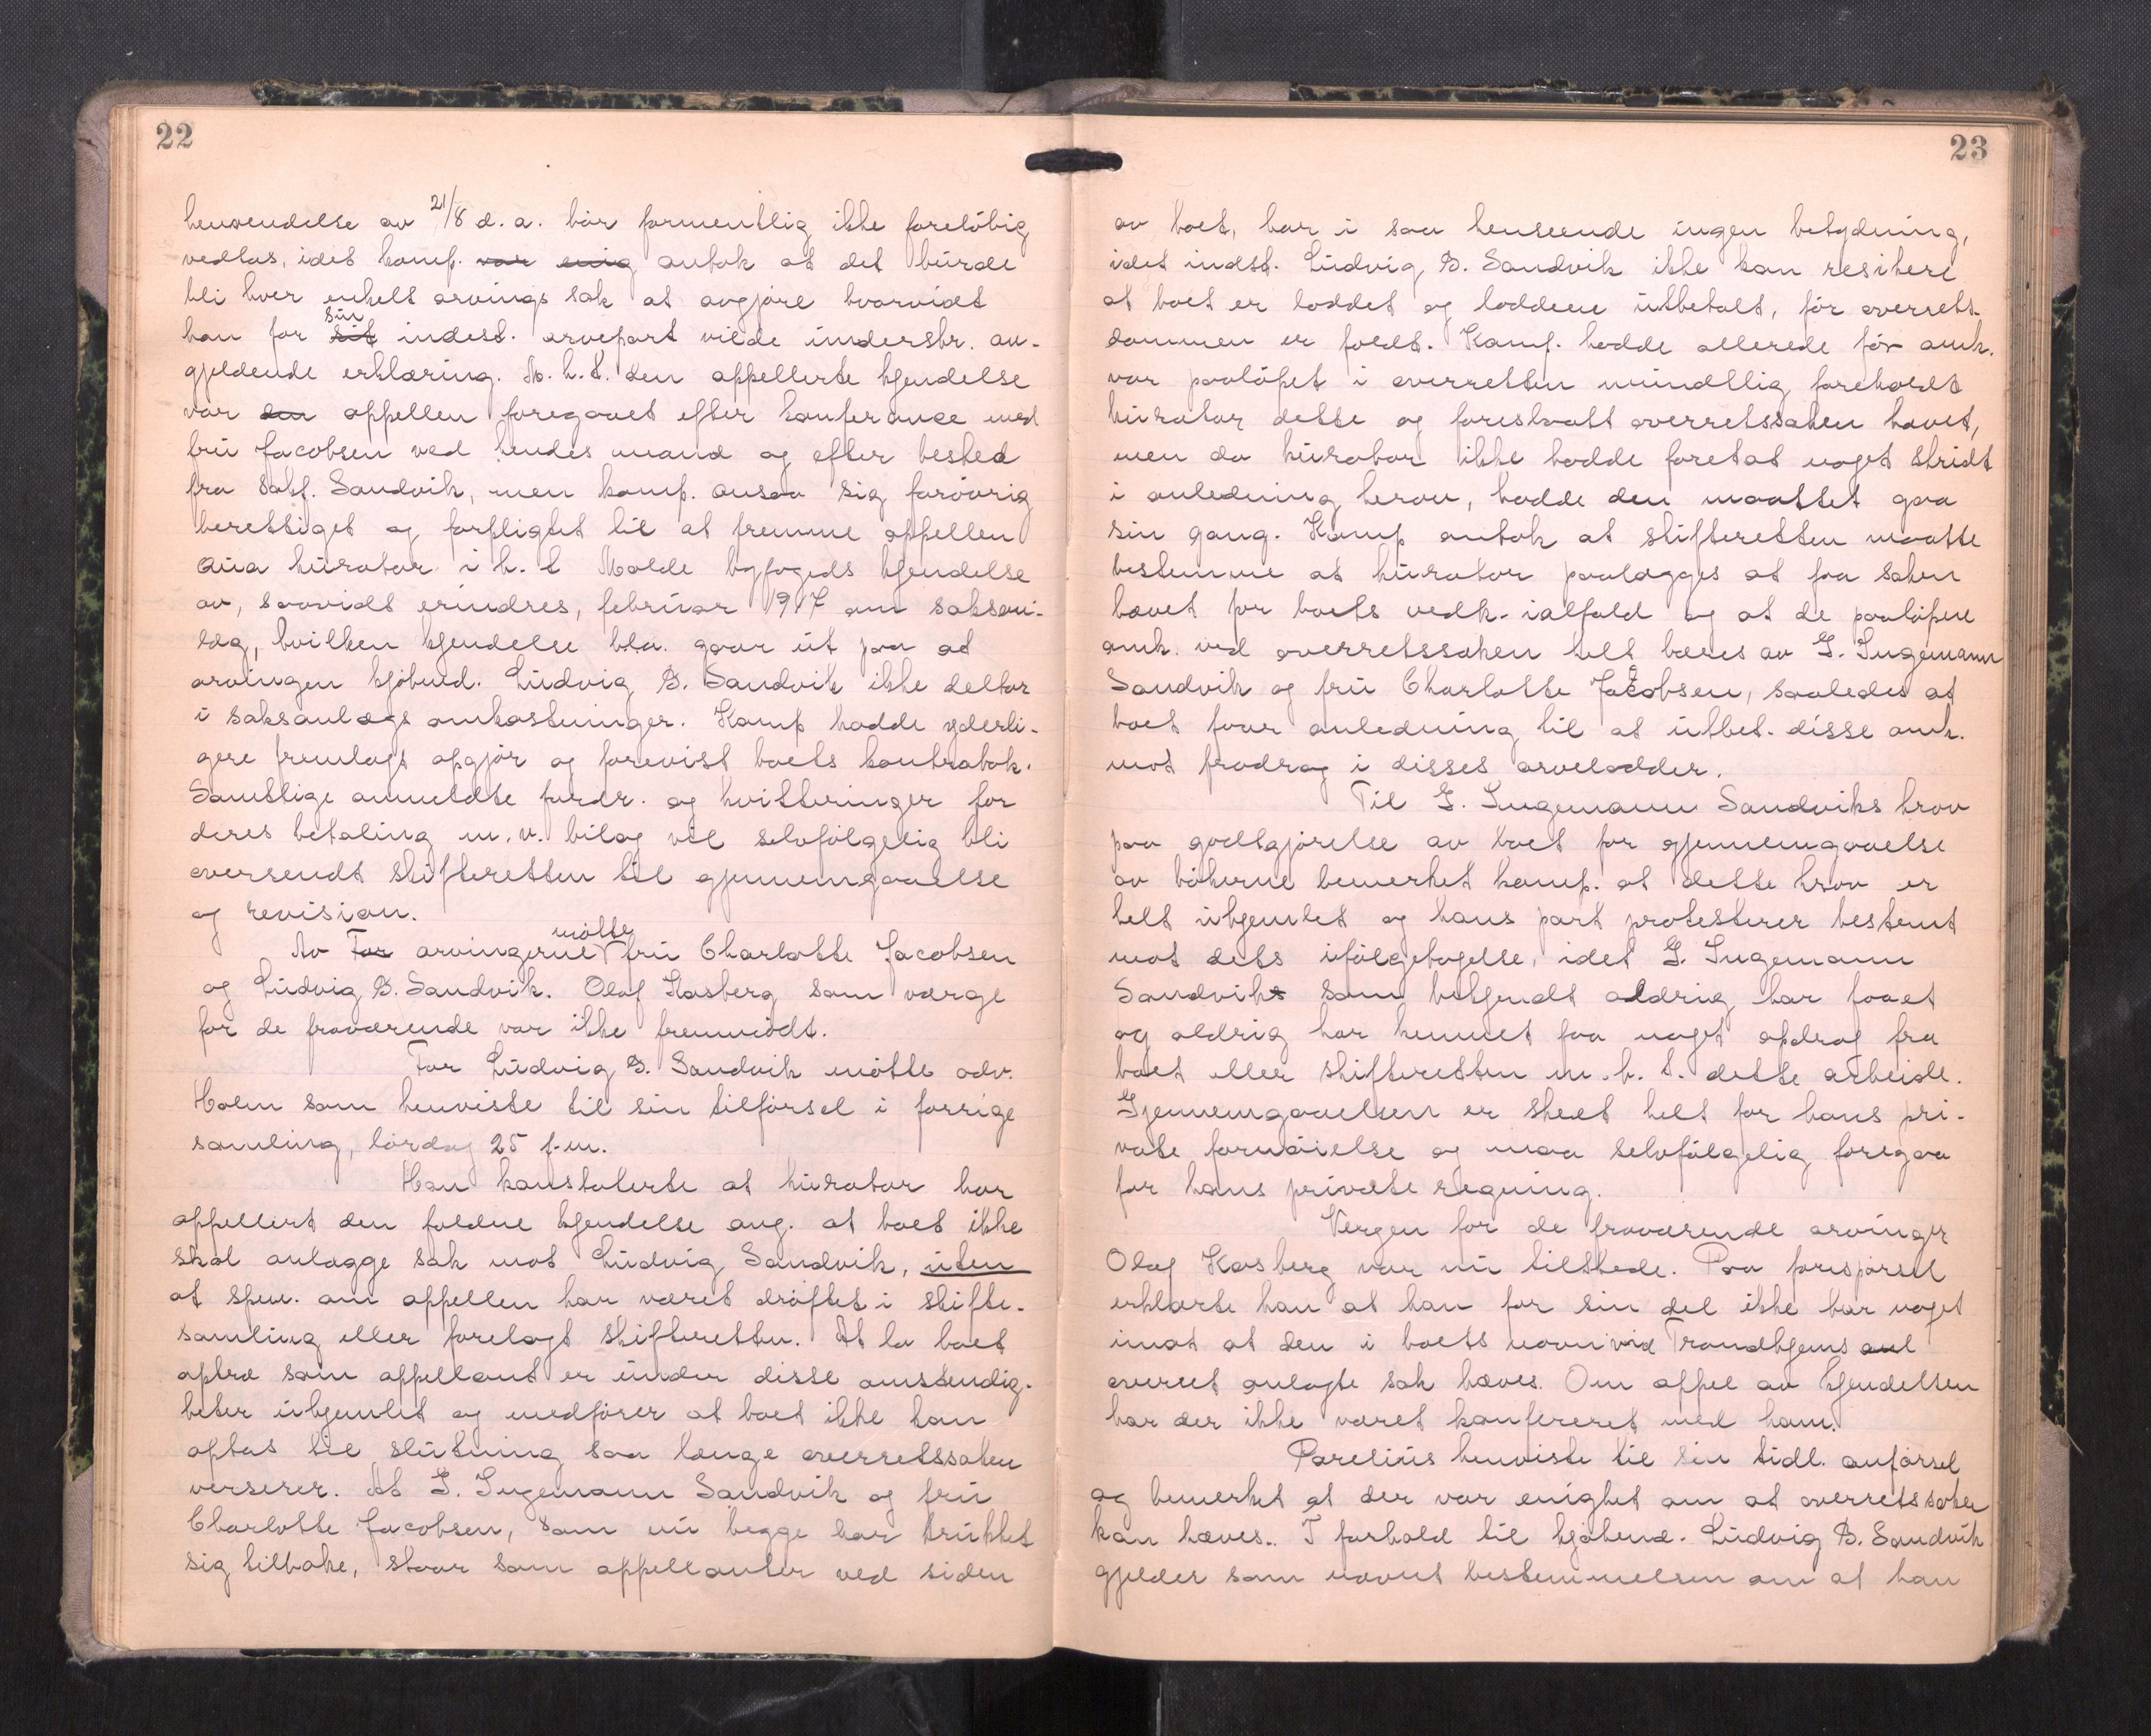 22
henvendelse av 21/8 d. a. bør formentlig ikke foreløbig
vedtas, idet komp. var enig antok at det burde
bli hver enkelt arvings sak at avgjøre hvorvidt
han for sit sin indest. arvepart vilde underskr. an-
gjeldende erklæring. M. h. t. den appellerte kjendelse
var den appellen foregaaet efter konferance med
fru Jacobsen ved hendes mand og efter besked
fra sakf. Sandvik, men komp. ansaa sig forøvrig
berettiget og forpligtet til at fremme appellen
qua kurator i h. t. Molde byfogeds kjendelse
av, saavidt erindres, februar 1917 om saksan-
læg, hvilken kjendelse bl.a. gaar ut paa at
arvingen kjøbmd. Ludvig B. Sandvik ikke deltar
i saksanlægs omkostninger. Komp hadde yderli-
gere fremlagt opgjør og forevist boets kontrabok.
Samtlige anmeldte fordr. og kvitteringer for
deres betaling m. v. bilag vil selvfølgelig bli
oversendt skifteretten til gjennemgaaelse
og revision.
Av For arvingerne møtte fru Charlotte Jacobsen
og Ludvig B. Sandvik. Olaf Kasberg som værge
for de fraværende var ikke fremmødt.
For Ludvig B. Sandvik møtte adv.
Holm som henviste til sin tilførsel i forrige
samling, lørdag 25 f.m.
Han konstaterte at kurator har
appellert den faldne kjendelse ang. at boet ikke
skal anlægge sak mot Ludvig Sandvik, uten
at spm. om appellen har været drøftet i skifte-
samling eller forelagt skifteretten. At la boet
optræ som appellant er under disse omstendig-
heter uhjemlet og medfører at boet ikke kan
optas til slutning saa længe overretssaken
verserer. At G. Ingemann Sandvik og fru
Charlotte Jacobsen, som nu begge har trukket
sig tilbake, staar som appellanter ved siden
23
av boet, har i saa henseende ingen betydning,
idet indst. Ludvig B. Sandvik ikke kan resikere
at boet er loddet og loddene utbetalt, før overrets-
dommen er faldt. Komp. hadde allerede før omk.
var paaløpet i overretten mundtlig foreholdt
kurator dette og foreslaatt overretssaken hævet,
men da kurator ikke hadde foretat noget skridt
i anledning herav, hadde den maattet gaa
sin gang. Komp antok at skifteretten maatte
bestemme at kurator paalægges at faa saken
hævet for boets vedk. ialfald og at de paaløpne
omk. ved overretssaken helt bæres av G. Ingemann
Sandvik og fru Charlotte Jacobsen, saaledes at
boet faar anledning til at utbet. disse omk.
mot fradrag i disses arvelodder.
Til G. Ingemann Sandviks krav
paa godtgjørelse av boet for gjennemgaaelse
av bøkerne bemerket komp. at dette krav er
helt uhjemlet og hans part protesterer bestemt
mot dets ifølgetagelse, idet G. Ingemann
Sandviks som bekjendt aldrig har faaet
og aldrig har kunnet faa noget opdrag fra
boet eller skifteretten m. h. t. dette arbeide.
Gjennemgaaelsen er skeet helt for hans pri-
vate fornøielse og maa selvfølgelig foregaa
for hans private regning.
Vergen for de fraværende arvinger
Olaf Kasberg var nu tilstede. Paa forespørsel
erklærte han at han for sin del ikke har noget
imot at den i boets navn ved Trondhjems
overret anlagte sak hæves. Om appel av kjendelsen
har der ikke været konfereret med ham.
Parelius henviste til sin tidl. anførsel
og bemerket at der var enighet om at overretssaken
kan hæves. I forhold til kjøbmd. Ludvig B. Sandvik
gjelder som nævnt bestemmelsen om at han